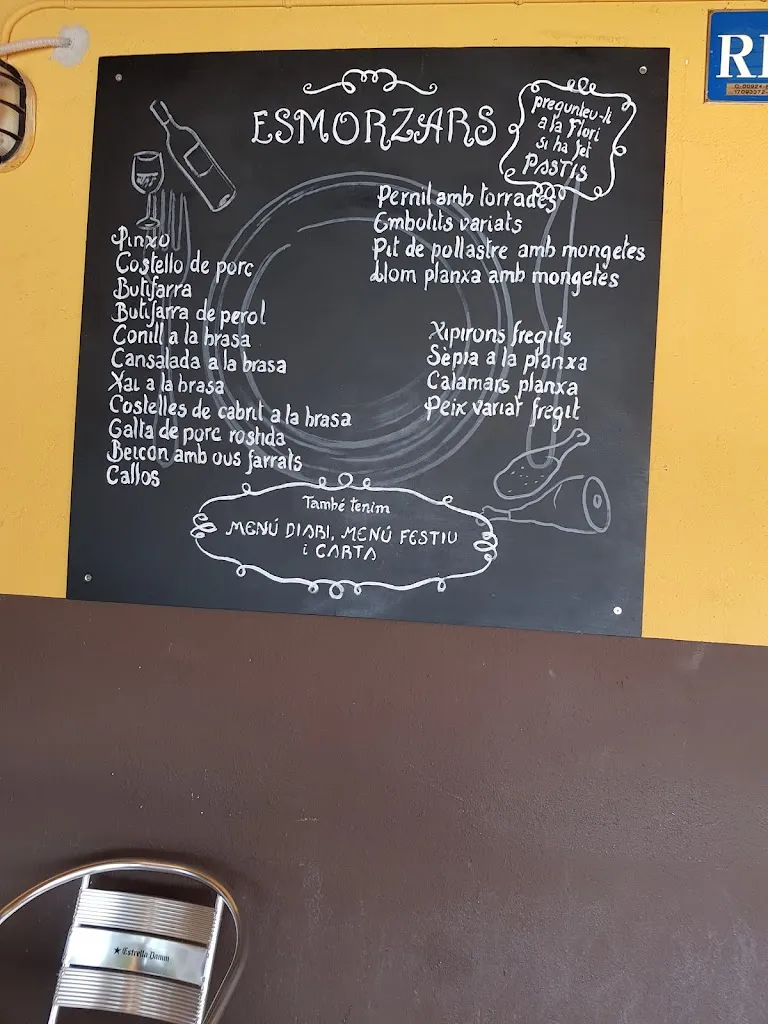 ESMORZARS
pregunteu-li
a la Flori
si ha fet
PASTIS
Pinxo
Costello de porc
Butifarra
Butifarra de perol
Conill a la brasa
Cansalada a la brasa
Xai a la brasa
Costelles de cabrit a la brasa
Galta de porc rostida
Beicon amb ous farrats
Callos
Pernil amb torrades
Embotits variats
Pit de pollastre amb mongetes
Llom planxa amb mongetes
Xipirons fregits
Sèpia a la planxa
Calamars planxa
Peix variat fregit
També tenim
MENÚ DIARI, MENÚ FESTIU
i CARTA
Estrella Damm